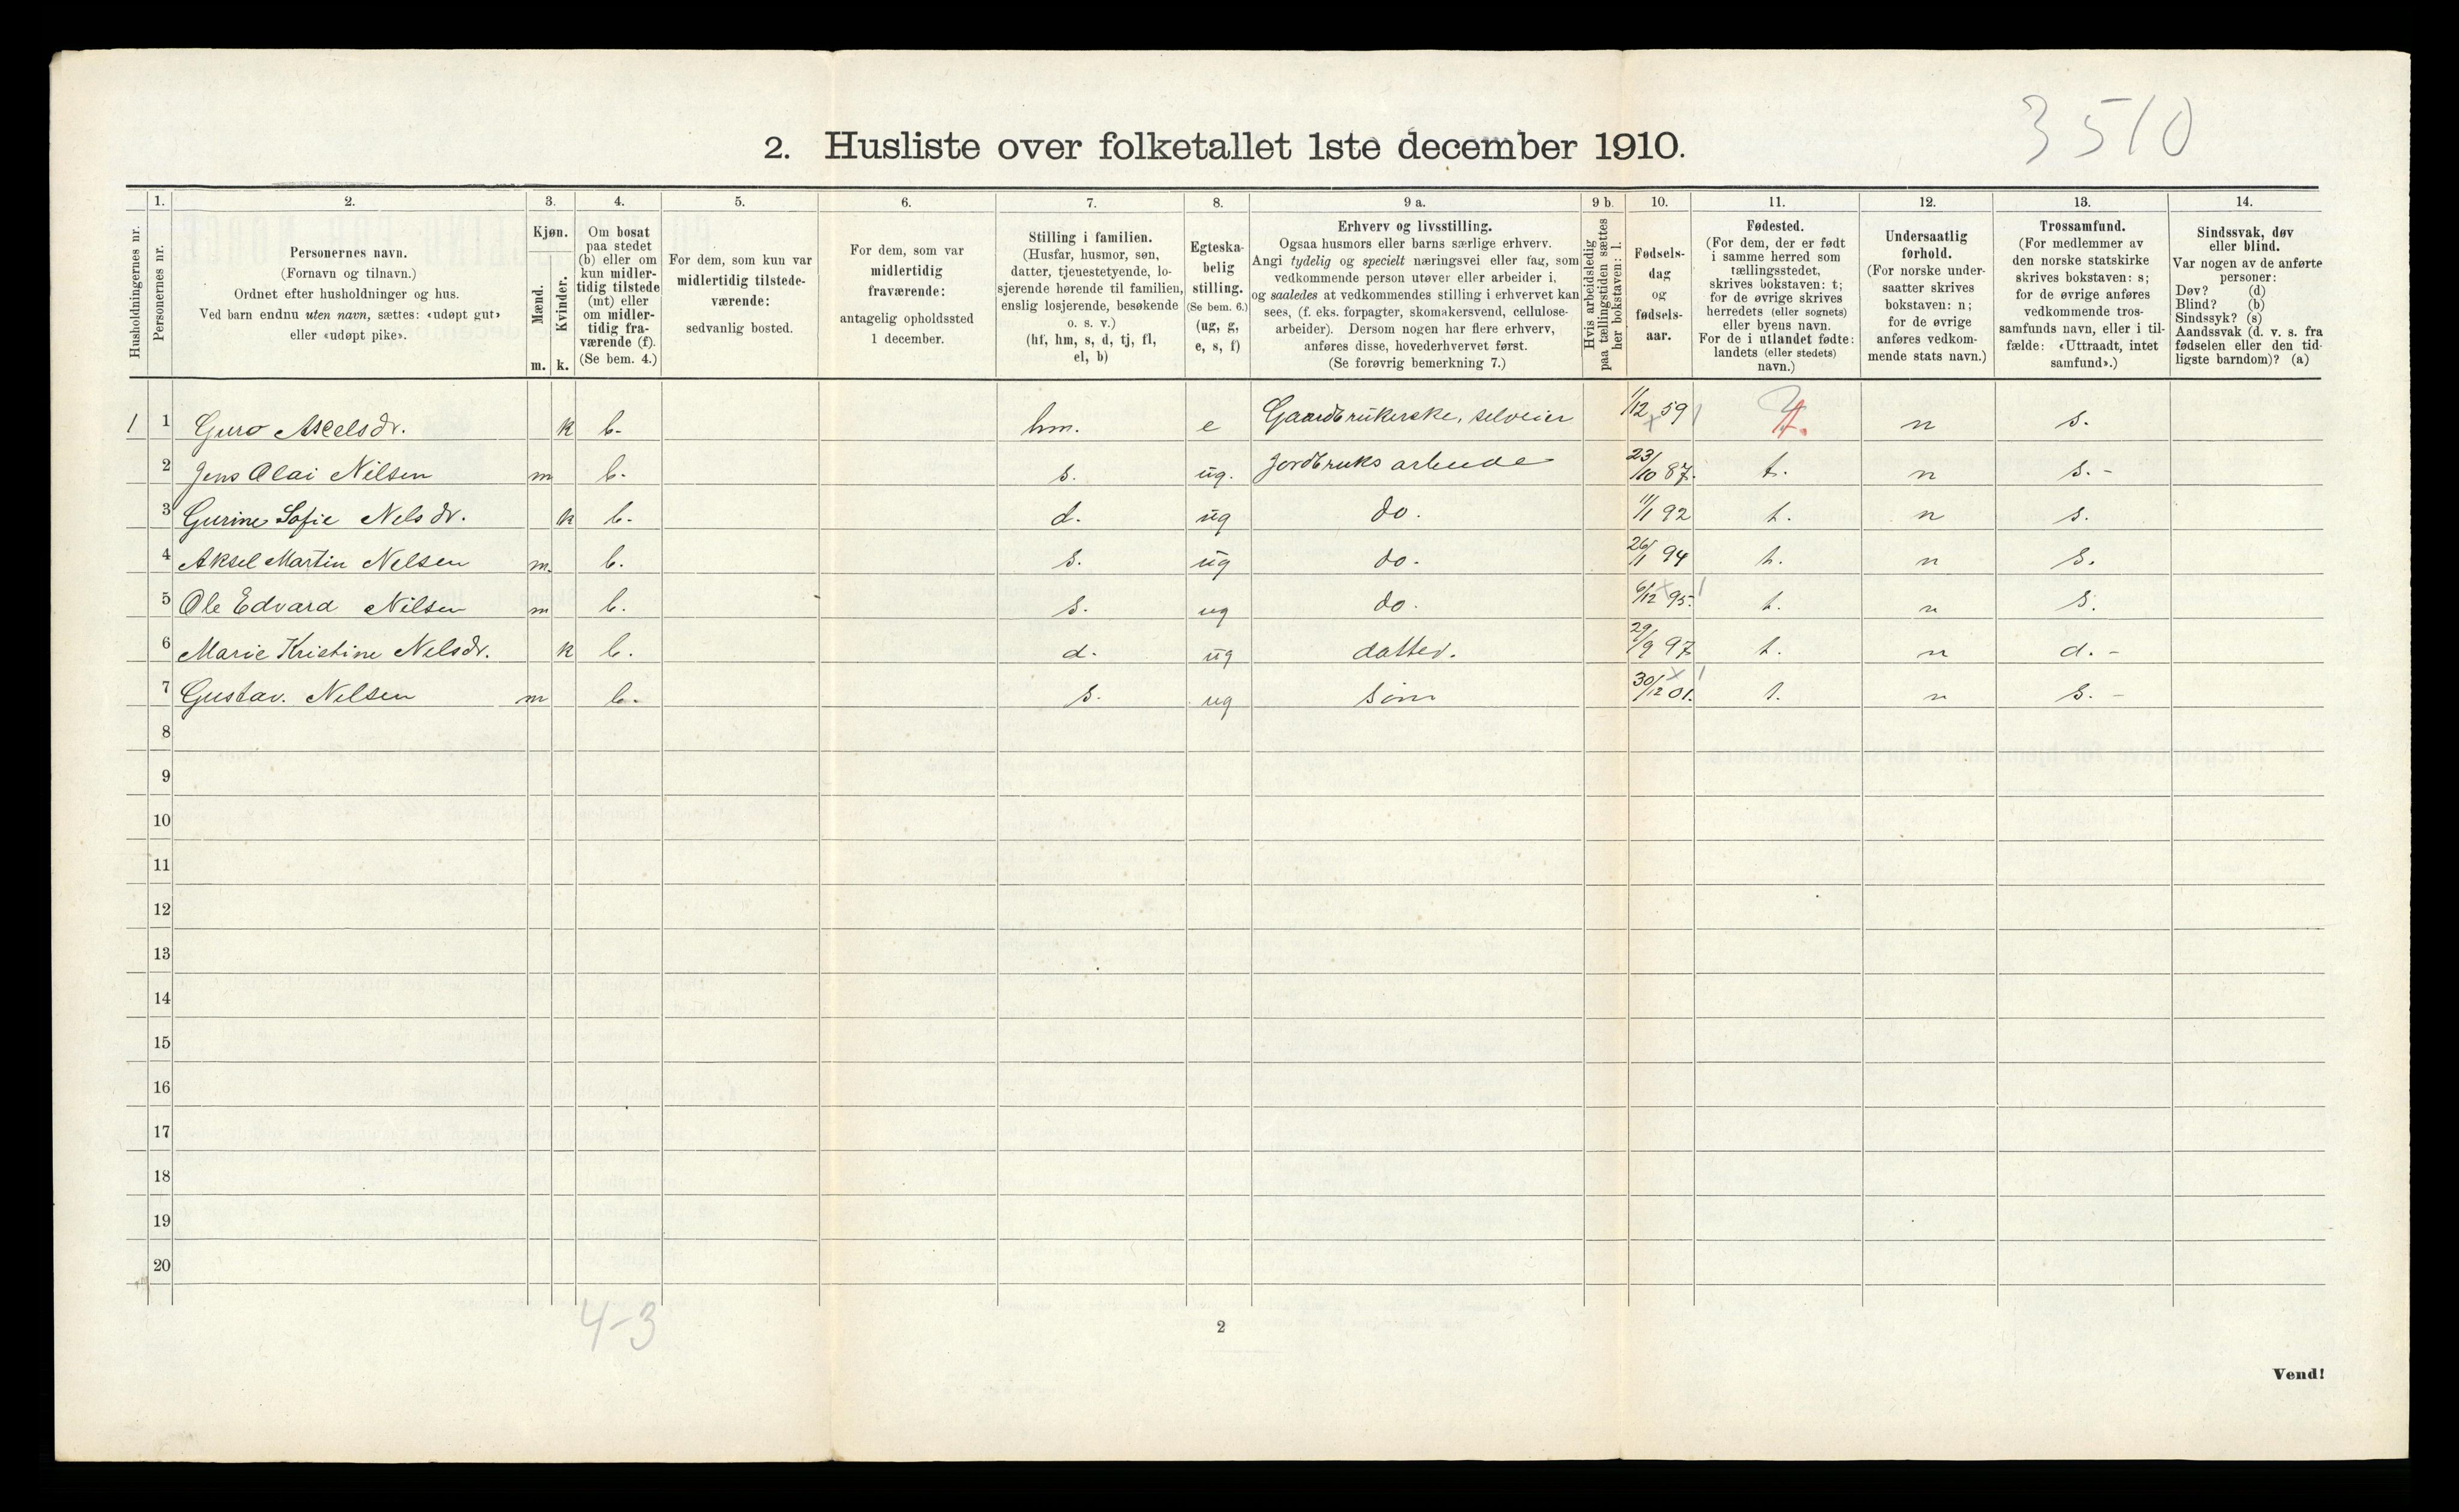 3510
2. Husliste over folketallet 1ste december 1910.
Husholdningernes nr.
1.
Personernes nr.
2.
Personernes navn.
(Fornavn og tilnavn.)
Ordnet efter husholdninger og hus.
Ved barn endnu uten navn, sættes: «udøpt gut»
eller «udøpt pike».
3.
Kjøn.
Mænd.
Kvinder.
m. k.
4.
Om bosat
paa stedet
(b) eller om
kun midler-
tidig tilstede
(mt) eller
om midler-
tidig fra-
værende (f).
(Se bem. 4.)
5.
For dem, som kun var
midlertidig tilstede-
værende:
sedvanlig bosted.
6.
For dem, som var
midlertidig
fraværende:
antagelig opholdssted
1 december.
7.
Stilling i familien.
(Husfar, husmor, søn,
datter, tjenestetyende, lo-
sjerende hørende til familien,
enslig losjerende, besøkende
o. s. v.)
(hf, hm, s, d, tj, fl,
el, b)
8.
Egteska-
belig
stilling.
(Se bem. 6.)
(ug, g,
e, s, f)
9 a.
Erhverv og livsstilling.
Ogsaa husmors eller barns særlige erhverv.
Angi tydelig og specielt næringsvei eller fag, som
vedkommende person utøver eller arbeider i,
og saaledes at vedkommendes stilling i erhvervet kan
sees, (f. eks. forpagter, skomakersvend, cellulose-
arbeider). Dersom nogen har flere erhverv,
anføres disse, hovederhvervet først.
(Se forøvrig bemerkning 7.)
9 b.
Hvis arbeidsledig
paa tællingstiden sættes
her bokstaven: l.
10.
Fødsels-
dag
og
fødsels-
aar.
11.
Fødested.
(For dem, der er født
i samme herred som
tællingsstedet,
skrives bokstaven: t;
for de øvrige skrives
herredets (eller sognets)
eller byens navn.
For de i utlandet fødte:
landets (eller stedets)
navn.)
12.
Undersaatlig
forhold.
(For norske under-
saatter skrives
bokstaven: n;
for de øvrige
anføres vedkom-
mende stats navn.)
13.
Trossamfund.
(For medlemmer av
den norske statskirke
skrives bokstaven: s;
for de øvrige anføres
vedkommende tros-
samfunds navn, eller i til-
fælde: «Uttraadt, intet
samfund».)
14.
Sindssvak, døv
eller blind.
Var nogen av de anførte
personer:
Døv? (d)
Blind? (b)
Sindssyk? (s)
Aandssvak (d. v. s. fra
fødselen eller den tid-
ligste barndom)? (a)
1 1 Guro Axelsdr. k b. hm. e Gaardbrukerske, selveier 1/12 59 t. n s.
2 Jens Olai Nilsen m b. s. ug. Jordbruks arbeide 23/10 87. t. n s. -
3 Gurine Sofie Nelsdr. k b. d. ug do. 11/1 92 t. n s.
4 Aksel Martin Nelsen m. b. s. ug do. 26/1 94 t. n s.
5 Ole Edvard Nilsen m b. s. ug do. 6/12 95. t. n s.
6 Marie Kristine Nelsdr. k b. d. ug datter. 29/9 97 t. n d. -
7 Gustav. Nilsen m b. s. ug sön 30/12 01. t. n s. -
8
9
10
11
12
13
14
15
16
17
18
19
20
4-3
2
Vend!